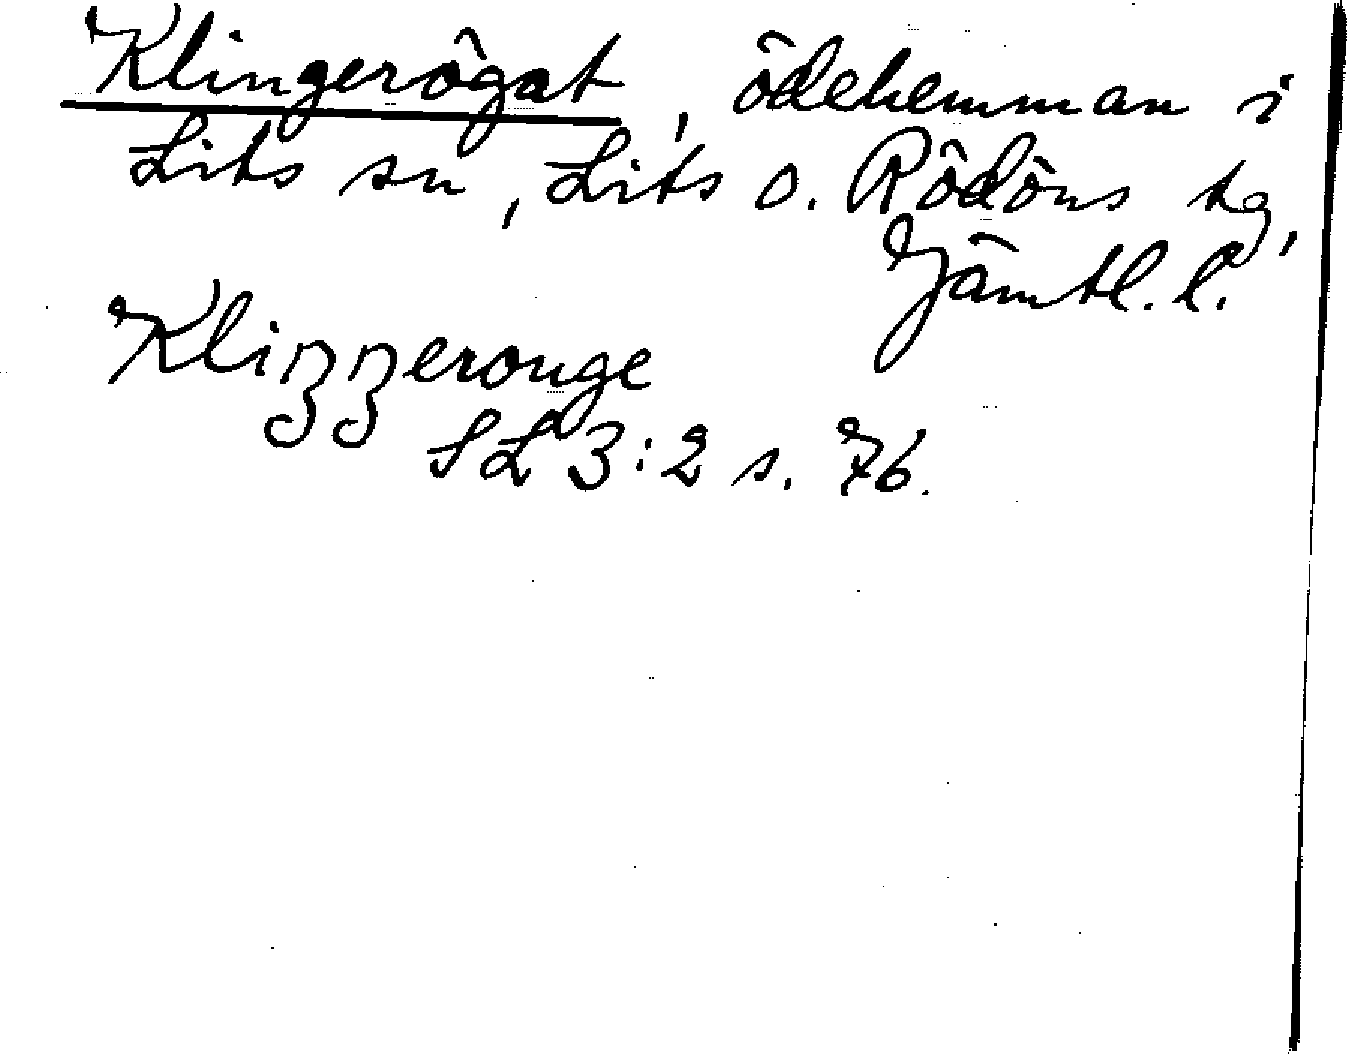 Klingerögat, ödehemman i
Lits sn, Lits o. Rödöns tg,
Jämtl. l.
Klizzerouge
SL 3:2 s. 76.